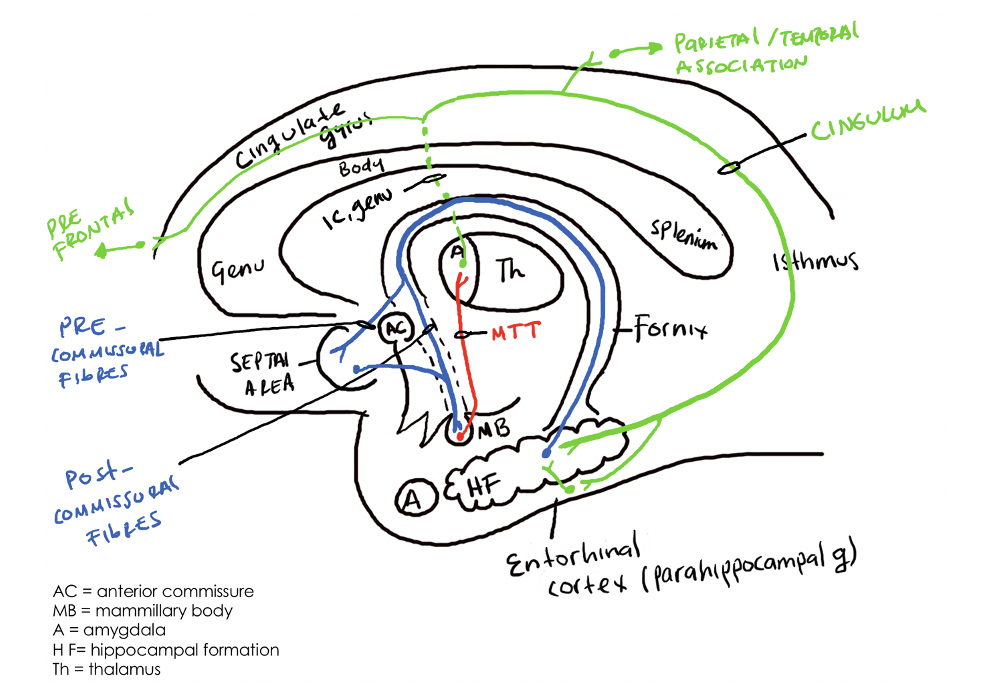 PARIETAL / TEMPORAL
ASSOCIATION
CINGULUM
Cingulate
gyrus
Body
IC, genu
PRE
FRONTAL
Genu
Splenium
Isthmus
A
Th
PRE -
COMMISSURAL
FIBRES
AC
MTT
Fornix
SEPTAL
AREA
MB
POST-
COMMISSURAL
FIBRES
A
HF
Entorhinal
cortex (parahippocampal g)
AC = anterior commissure
MB = mammillary body
A = amygdala
H F= hippocampal formation
Th = thalamus